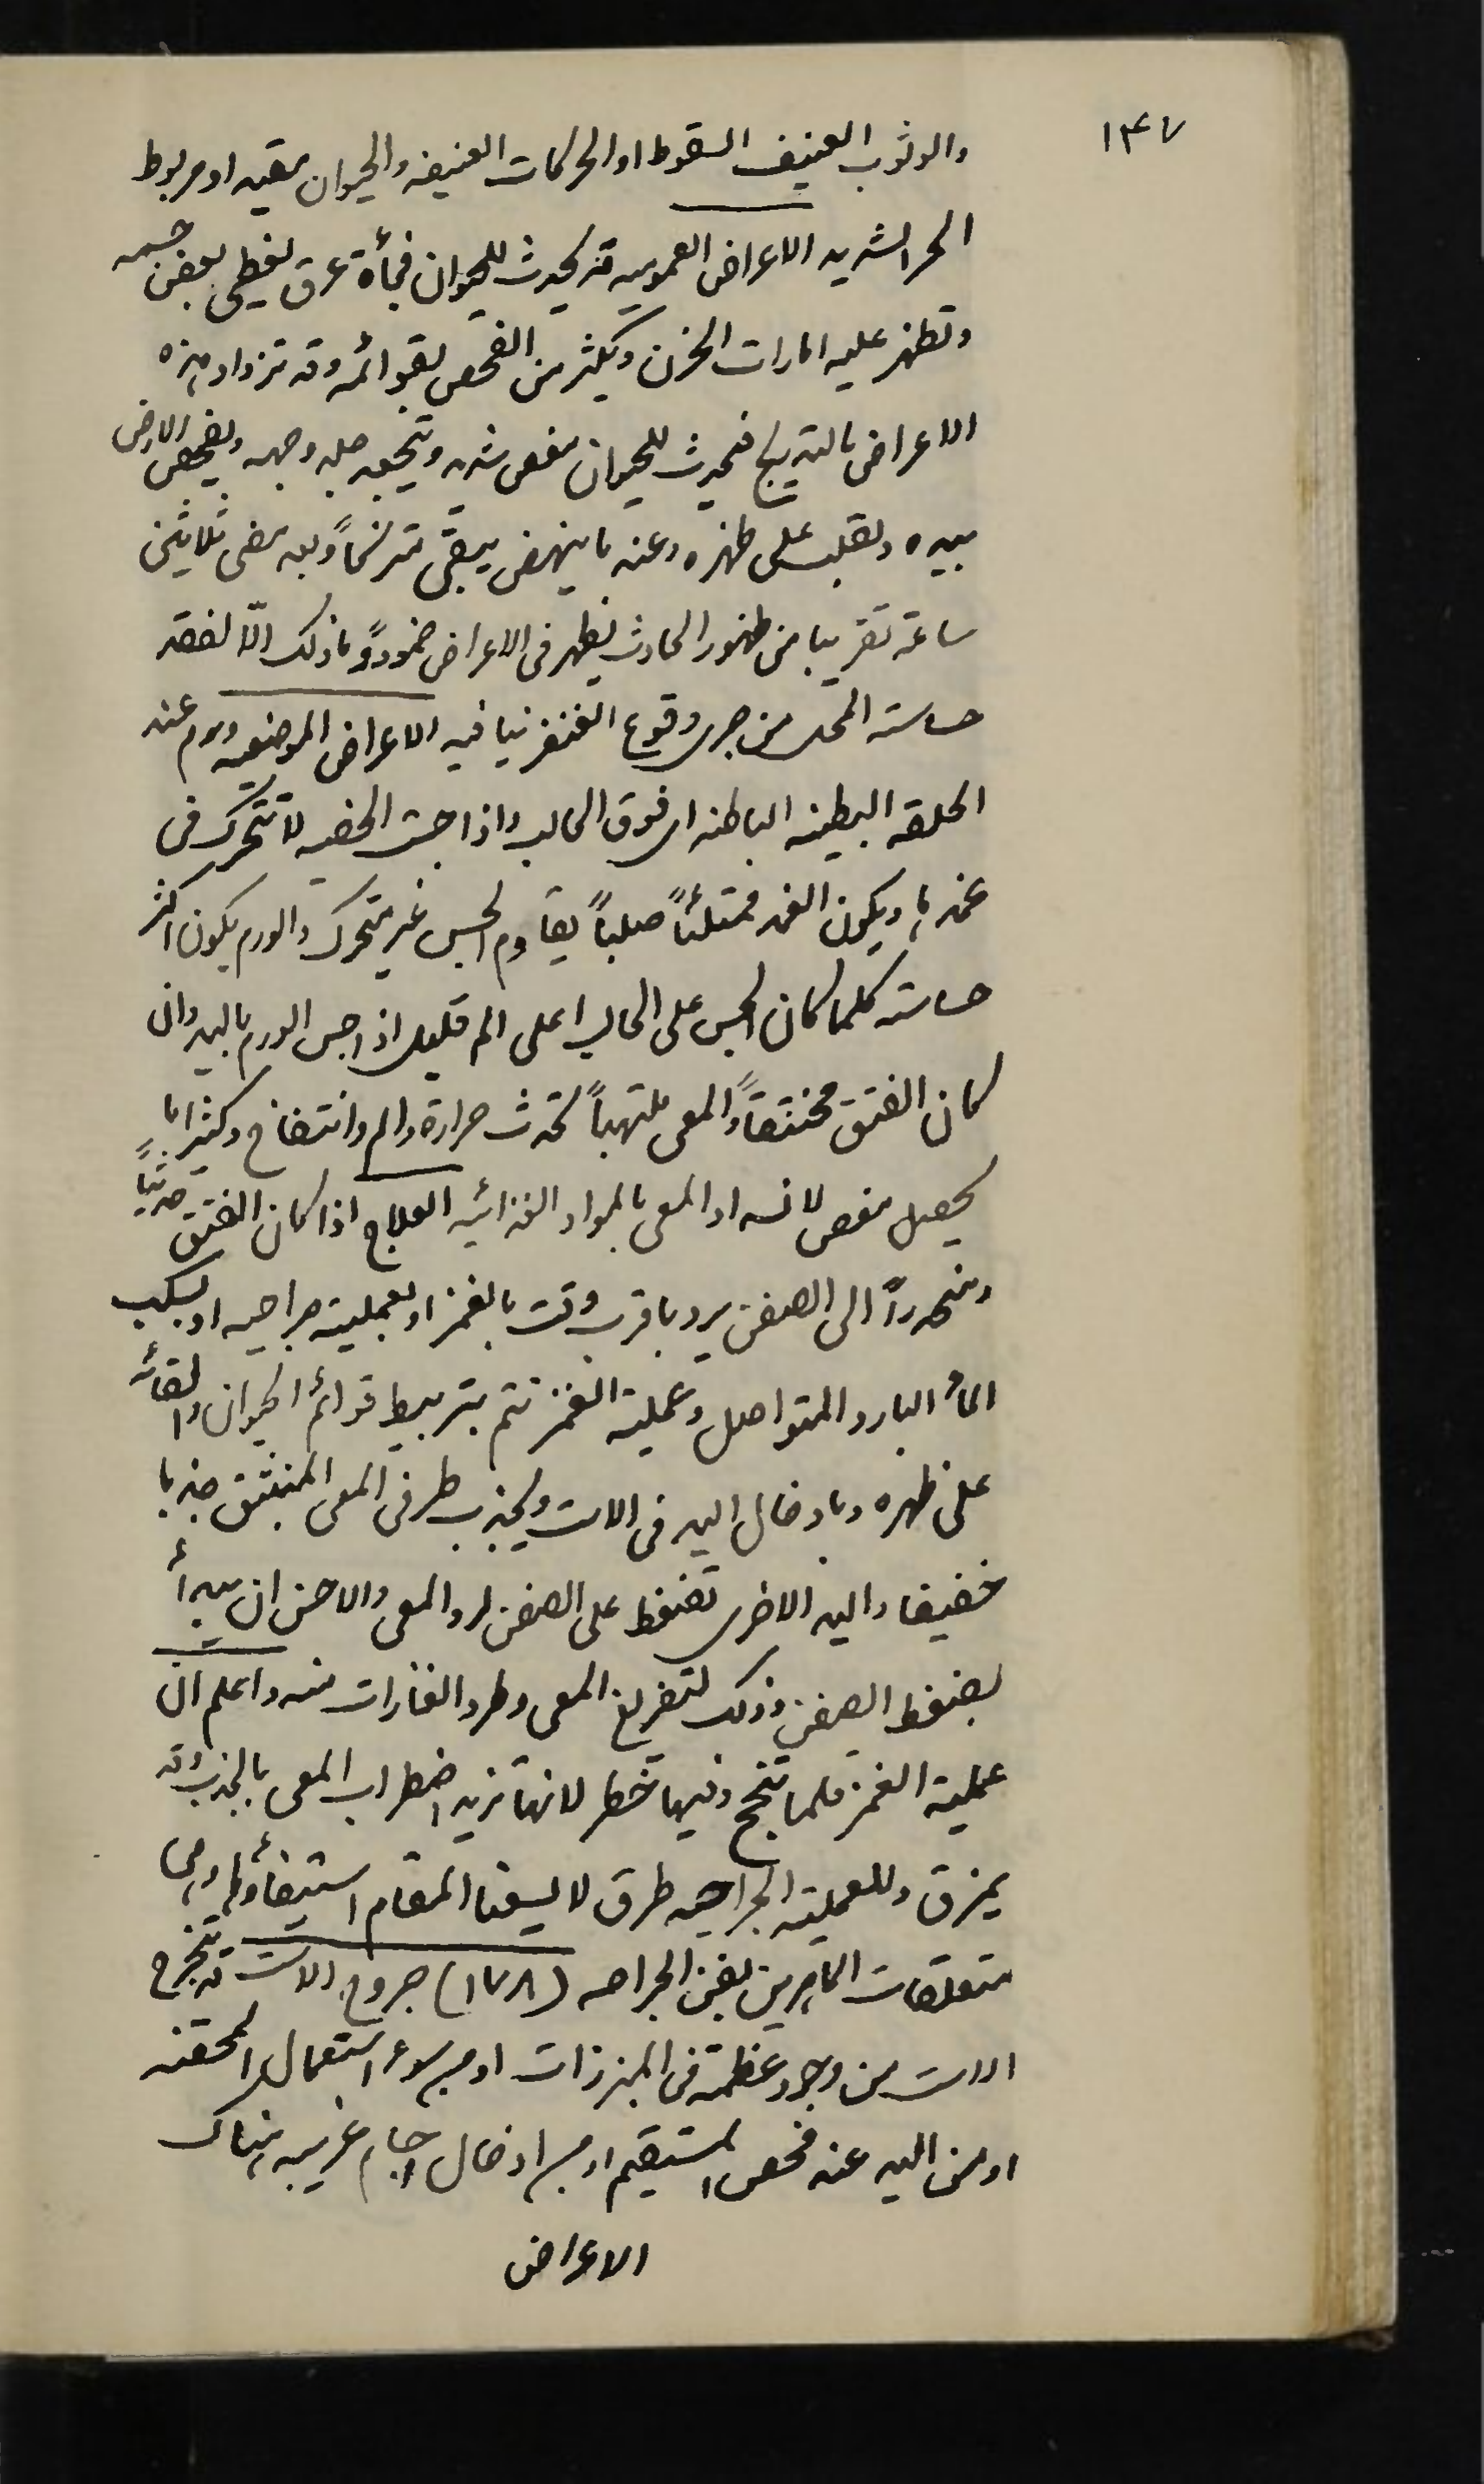 ١٤٧
والوثوب العنيف السقوط او الحركات العنيفه والحيوان مقيد او مربوط
الحر الشديد الاعراض العموميه قد يحدث للحيوان فجأة عرق يغطى بعض جسمه
وتظهر عليه امارات الحزن ويكثر من الفحص بقوائمه وقد تزداد هذه
الاعراض بالتدريج فيحدث للحيوان مغص شديد ويتجعد جلد وجهه ويفحص الارض
بيده ويقلب على ظهره وعند ما ينهض يبقى مترنحاً وبعد مضى ثلاثين
ساعة تقريبا من ظهور الحادث يظهر فى الاعراض خمودٌ وما ذلك الّا لفقد
حاسة المحل من جرى وقوع الغنغرينا فيه الاعراض الموضعيه ورم عند
الحلقه البطنيه الباطنه اى فوق الحالب واذا جست الخصيه لا تتحرك فى
غمدها ويكون الغمد ممتلئاً صلباً يقاوم الجس غير متحرك والورم يكون اكثر
حاسته كلما كان الجس على الحالب اعلى الم قليل اذا جس الورم باليد وان
كان الفتق مختنقاً والمعى ملتهباً تحدث حرارة والم وانتفاخ وكثيرا ما
يحصل مغص لانسداد المعى بالمواد الغذائيه العلاج اذا كان الفتق حديثاً
ومنحدراً الى الصفن يرد باقرب وقت بالغمز او بعملية جراحيه او بسكب
المأ البارد المتواصل وعملية الغمز تتم بتربيط قوائم الحيوان والقائه
على ظهره وبادخال اليد فى الاست ويجذب طرفى المعى المنبثق جذبا
خفيفا واليد الاخرى تضغط على الصفن لرد المعى والاحسن ان يبدأ
بضغط الصفن وذلك لتفريغ المعى وطرد الغازات منه واعلم ان
عملية الغمز قلما تنجح وفيها خطر لانها تزيد اضطراب المعى بالجذب وقد
يمزق وللعملية الجراحيه طرق لا يسعنا المقام استيفأوها وهى
متعلقات الماهرين بفن الجراحه (١٧٨) جروح الاست قد تنجرح
الاست من وجود عظمة فى المبرزات او من سوء استعمال المحقنه
او من اليد عند فحص المستقيم او من ادخال اجسام غريبه هناك
الاعراض